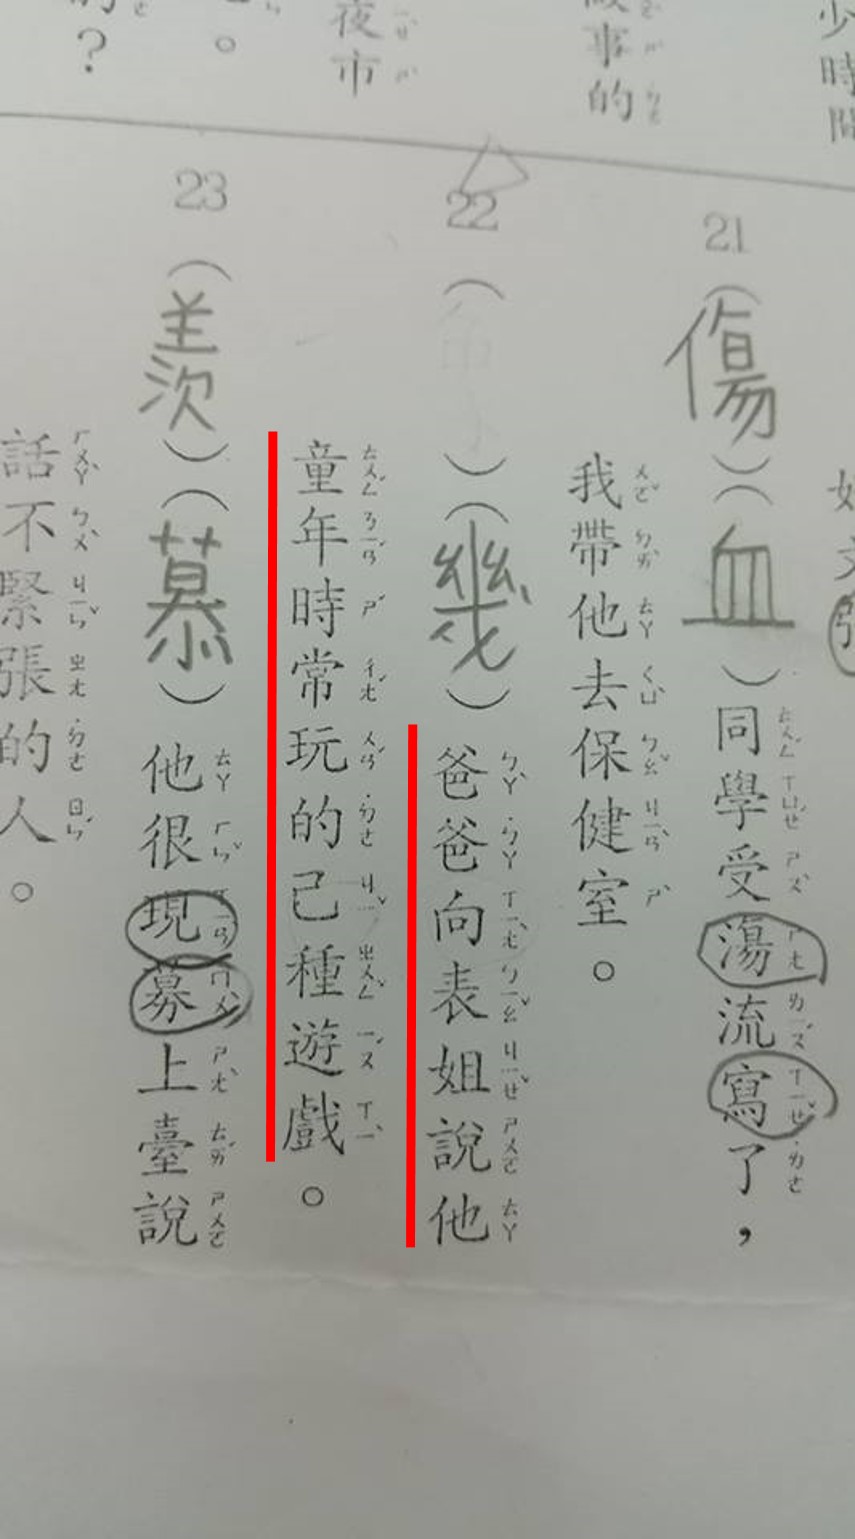 少時間
做事的
夜市
。
的？
好
文
張
21（傷）（血）同學受瀉流寫了，
我帶他去保健室。
22（）（幾）爸爸向表姐說他
童年時常玩的己種遊戲。
23（羨）（慕）他很現募上臺說
話不緊張的人。